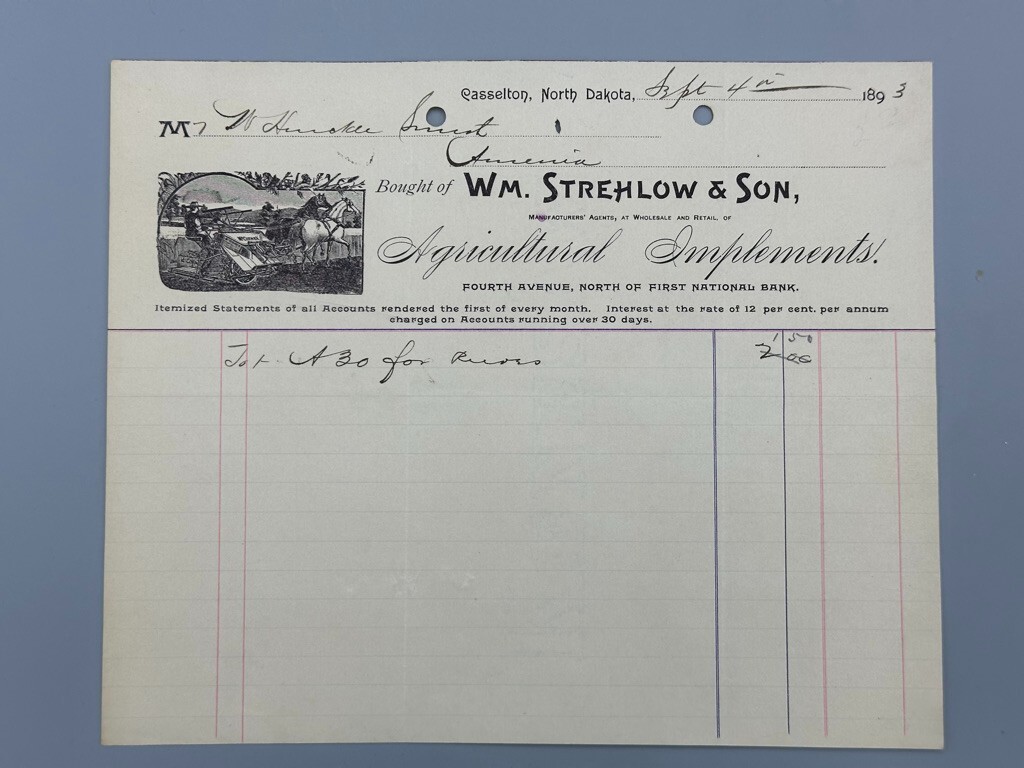 Casselton, North Dakota, Sept 4th 1893
Mr W
Amenia
Bought of WM. STREHLOW & SON,
MANUFACTURERS' AGENTS, AT WHOLESALE AND RETAIL, OF
Agricultural Implements.
FOURTH AVENUE, NORTH OF FIRST NATIONAL BANK.
Itemized Statements of all Accounts rendered the first of every month. Interest at the rate of 12 per cent. per annum
charged on Accounts running over 30 days.
1 50
A 30 for 2 00